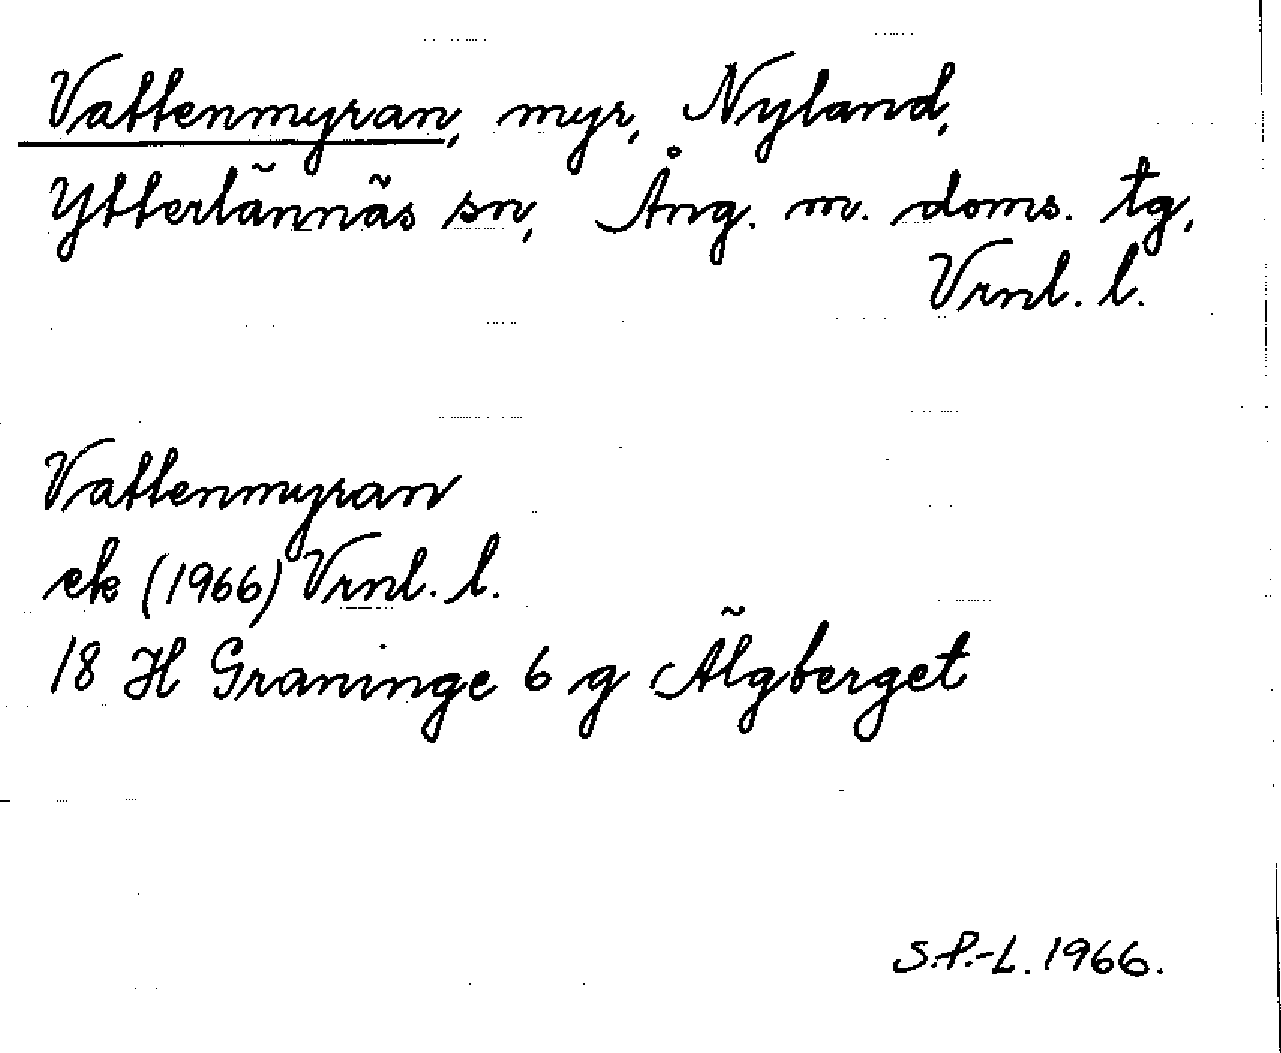 Vattenmyran, myr, Nyland,
Ytterlännäs sn, Ång. m. doms. tg,
Vrnl. l.
Vattenmyran
ek (1966) Vrnl. l.
18 H Graninge 6 g Älgberget
S.P.-L. 1966.